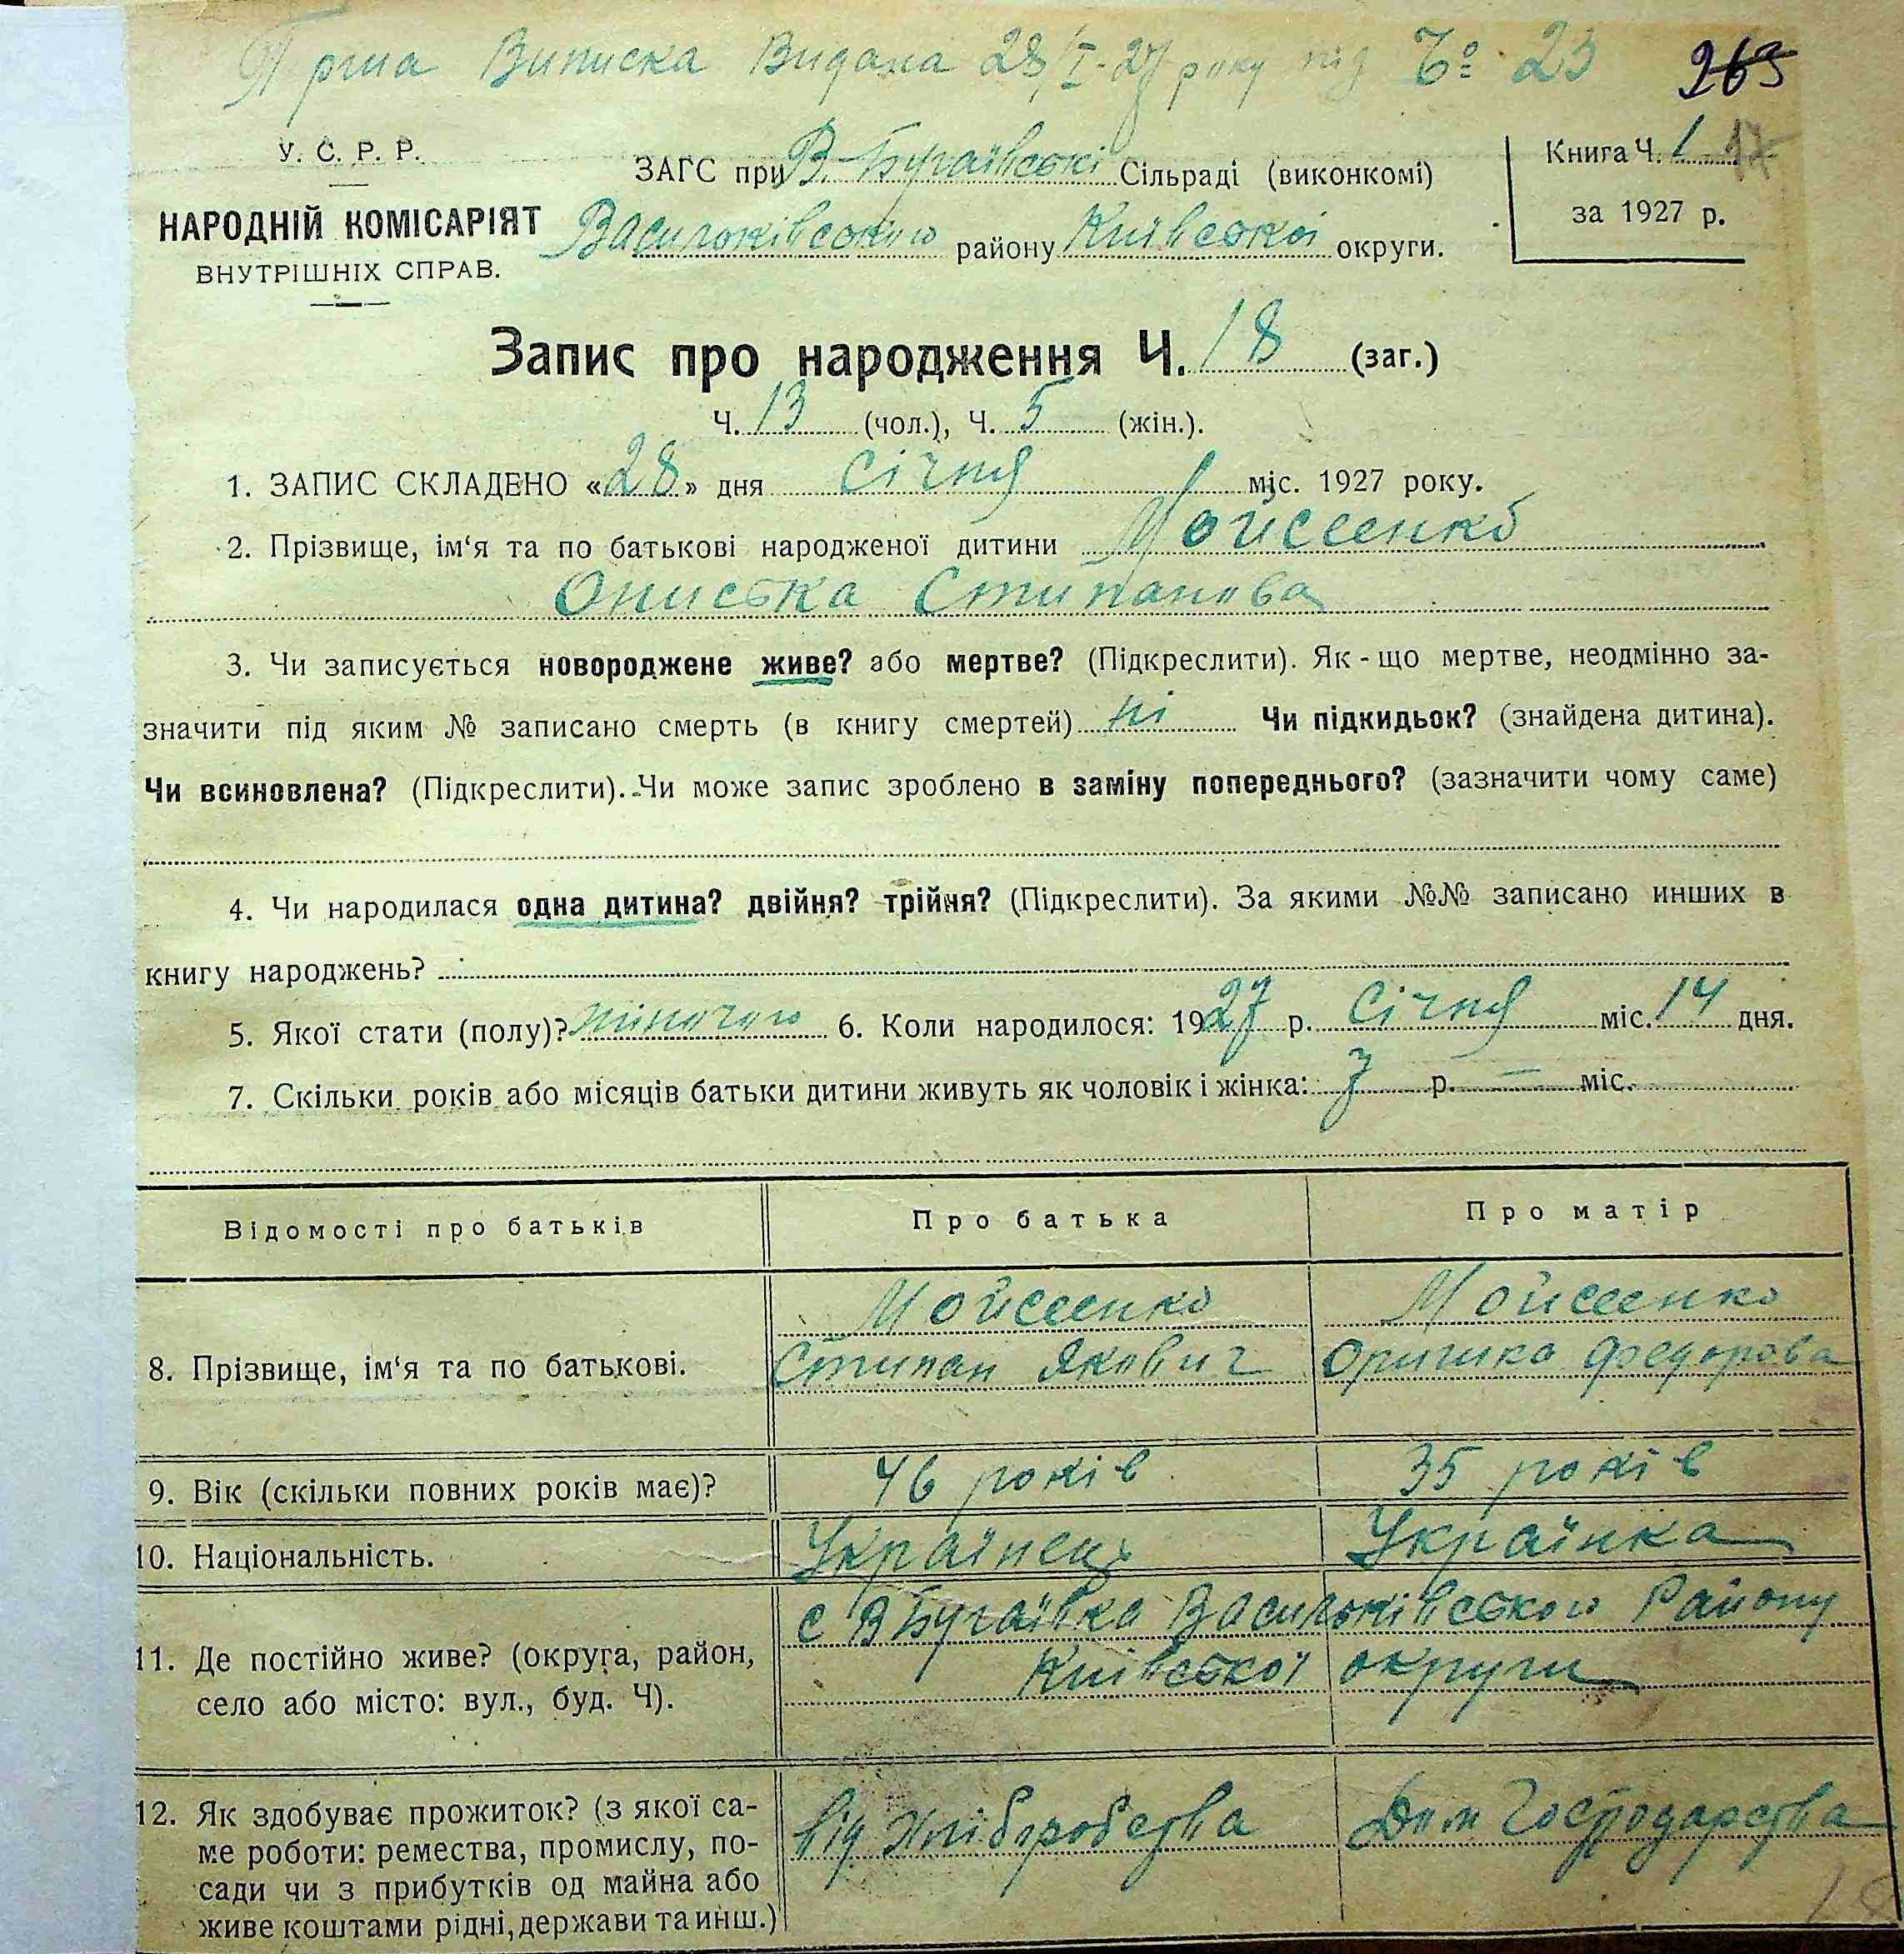 Перша Виписка Видана 28/I-27 року під Ч° 23
263
У. С. Р. Р.
НАРОДНІЙ КОМІСАРІЯТ
ВНУТРІШНІХ СПРАВ.
ЗАГС при В. Бугаївські Сільраді (виконкомі)
Васильківського району Київської округи.
Книга Ч. 1 17
за 1927 р.
Запис про народження Ч. 18 (заг.)
Ч. 13 (чол.), Ч. 5 (жін.).
1. ЗАПИС СКЛАДЕНО «28» дня Січня міс. 1927 року.
2. Прізвище, ім‘я та по батькові народженої дитини Мойсеенко
Ониська Стипанова
3. Чи записується новороджене живе? або мертве? (Підкреслити). Як-що мертве, неодмінно за-
значити під яким № записано смерть (в книгу смертей) ні Чи підкидьок? (знайдена дитина).
Чи всиновлена? (Підкреслити). Чи може запис зроблено в заміну попереднього? (зазначити чому саме)
4. Чи народилася одна дитина? двійня? трійня? (Підкреслити). За якими №№ записано инших в
книгу народжень?
5. Якої стати (полу)? жіночого 6. Коли народилося: 1927 р. Січня міс. 14 дня.
7. Скільки років або місяців батьки дитини живуть як чоловік і жінка: 7 р. — міс.
Відомості про батьків Про батька Про матір
8. Прізвище, ім‘я та по батькові.
Мойсеенко
Стипан Якович
Мойсеенко
Оришка Федорова
9. Вік (скільки повних років має)? 46 років 35 років
10. Національність. Українець Українка
11. Де постійно живе? (округа, район,
село або місто: вул., буд. Ч).
с В Бугаївка Васильківського Району
Київської округи
12. Як здобуває прожиток? (з якої са-
ме роботи: ремества, промислу, по-
сади чи з прибутків од майна або
живе коштами рідні, держави та инш.)
від Хліборобства Дом Господарства
18